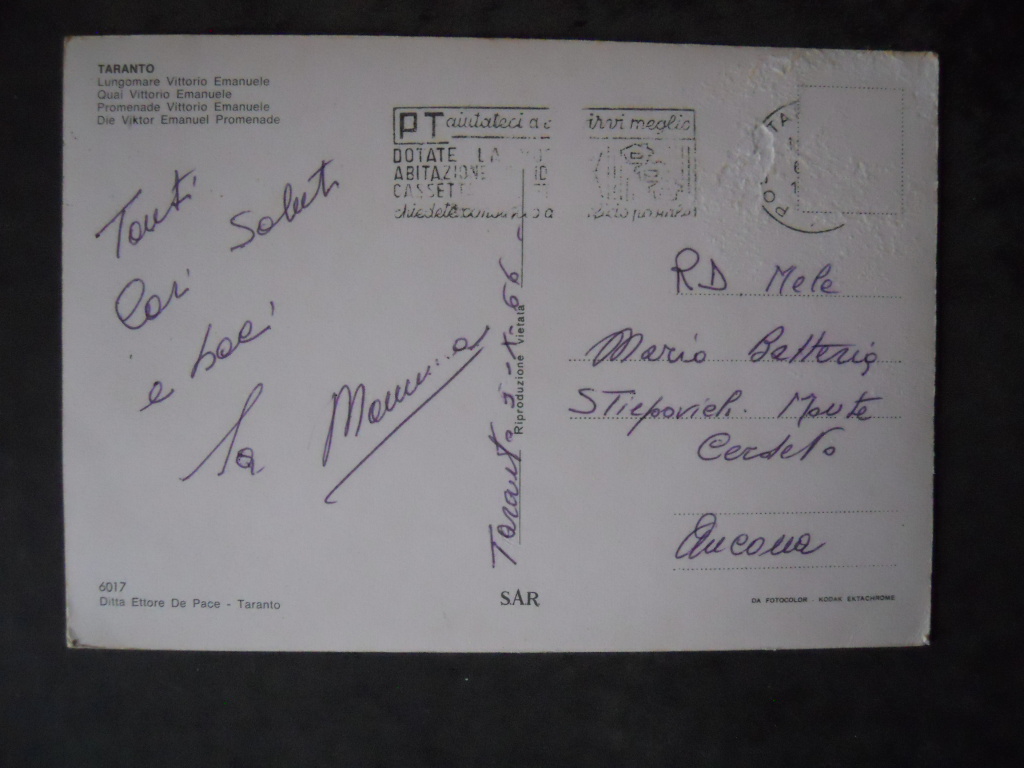 TARANTO
Lungomare Vittorio Emanuele
Quai Vittorio Emanuele
Promenade Vittorio Emanuele
Die Viktor Emanuel Promenade
PT aiutateci a irvi meglio
DOTATE LA
ABITAZIONE
CASSETT
Tanti
Cari Saluti
e baci
la Mamma
Taranto 5-1-66
Riproduzione vietata
RD Mele
Mario Batteria
Stiepovich. Monte
Cerdeto
Ancona
6017
Ditta Ettore De Pace - Taranto
SAR
DA FOTOCOLOR - KODAK EKTACHROME